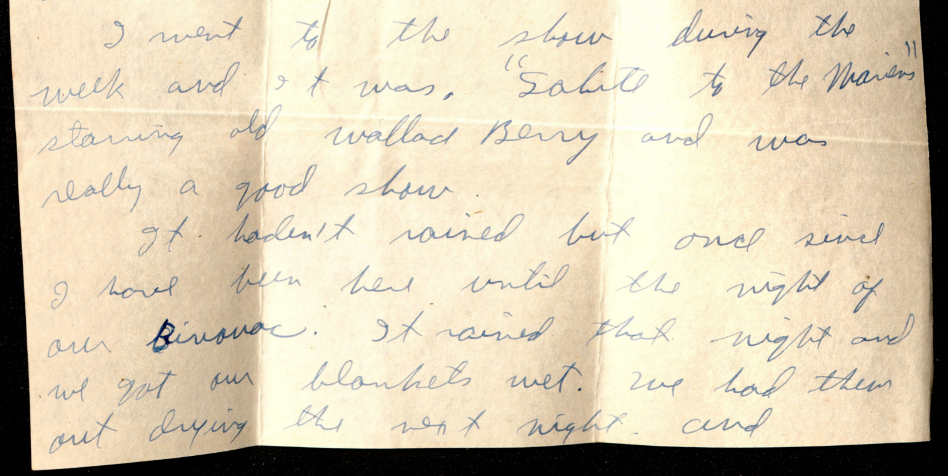 I went to the show during the
week and it was, "Salute to the Mariens"
starring old wallad Berry and was
really a good show.
It haden't rained but once since
I have been here until the night of
our Bivouac. It rained that night and
we got our blankets wet. We had them
out drying the next night. and